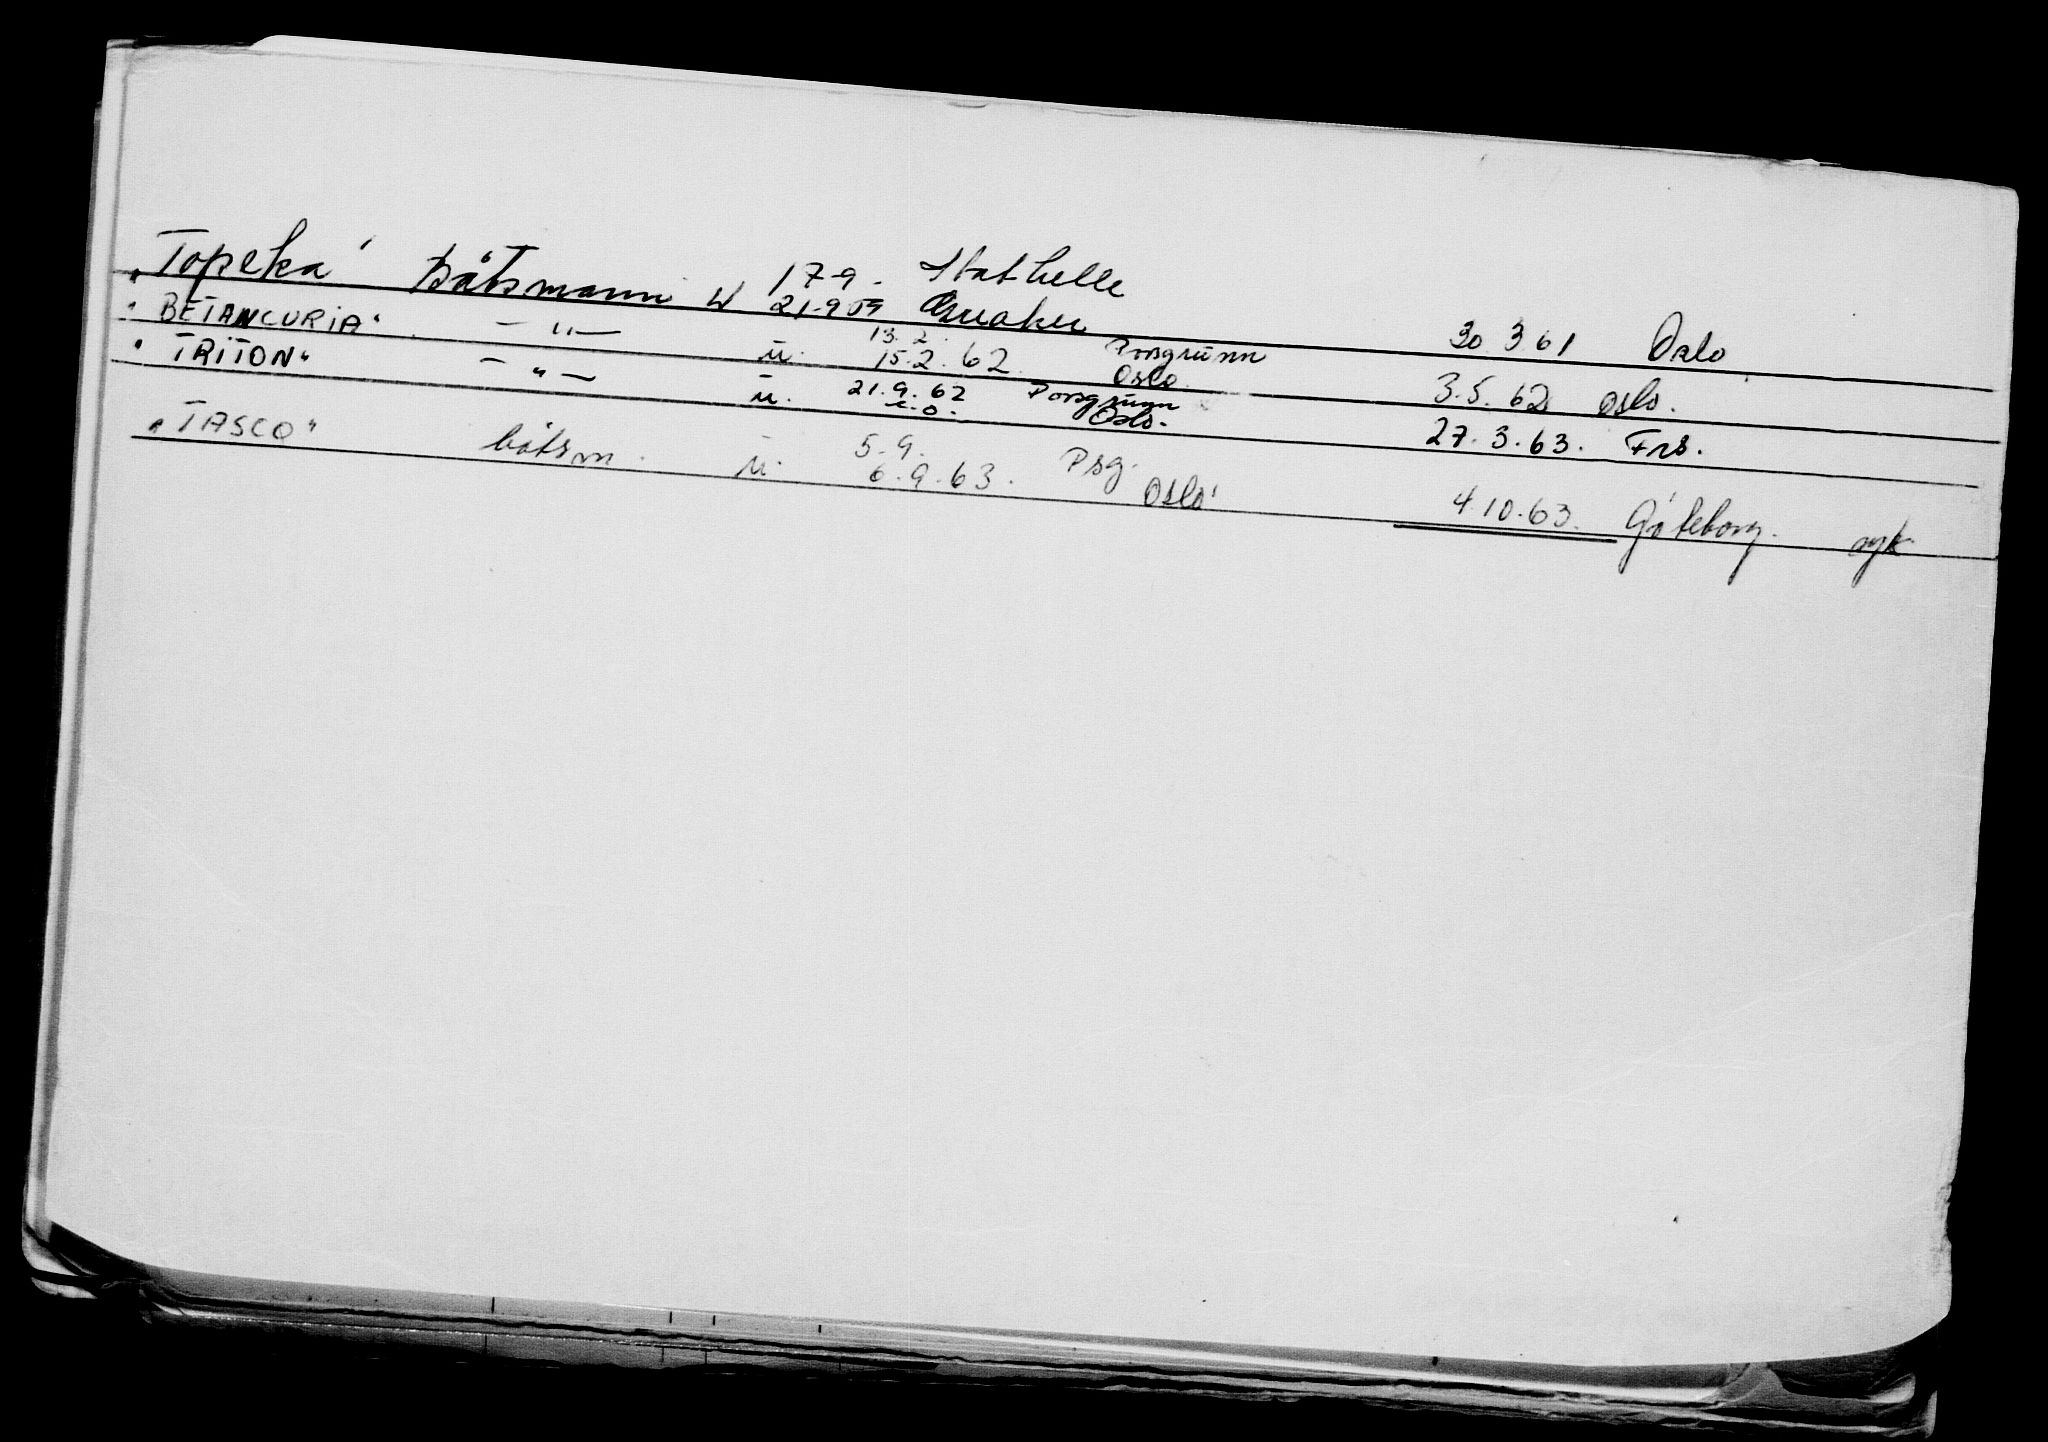 "Topeka" Båtsmann u 17-9. Stathelle
21-9 59 30.3 61 Oslo
"BETANCURIA" — " — u. 13.2. Porsgrunn
15.2.62. Oslo 3.5.62 Oslo.
"TRITON" — " — u. 21.9.62 Porsgrunn
s.d. Oslo. 27.3.63. Frs.
"TASCO" båtsm. u. 5.9. Psg.
6.9.63. Oslo 4.10.63. Göteborg. syk